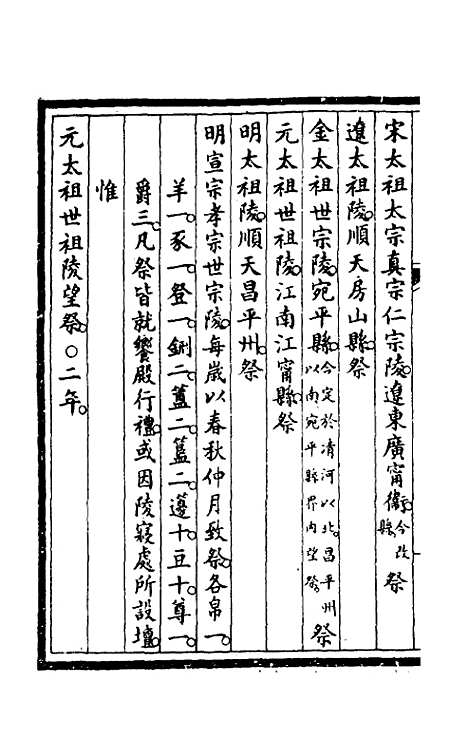 宋太祖太宗真宗仁宗陵。遼東廣甯衛。今改縣。祭
遼太祖陵。順天房山縣。祭
金太祖世宗陵。宛平縣。今定於清河以北。昌平州以南宛平縣界內望祭。祭
元太祖世祖陵。江南江甯縣。祭
明太祖陵。順天昌平州。祭
明宣宗孝宗世宗陵。每歲以春秋仲月致祭。各帛一。
羊一。豕一。登一。鉶二。簠二。簋二。籩十。豆十。尊一。
爵三。凡祭皆就饗殿行禮。或因陵寢處所設壇。
惟
元太祖世祖陵望祭。○二年。